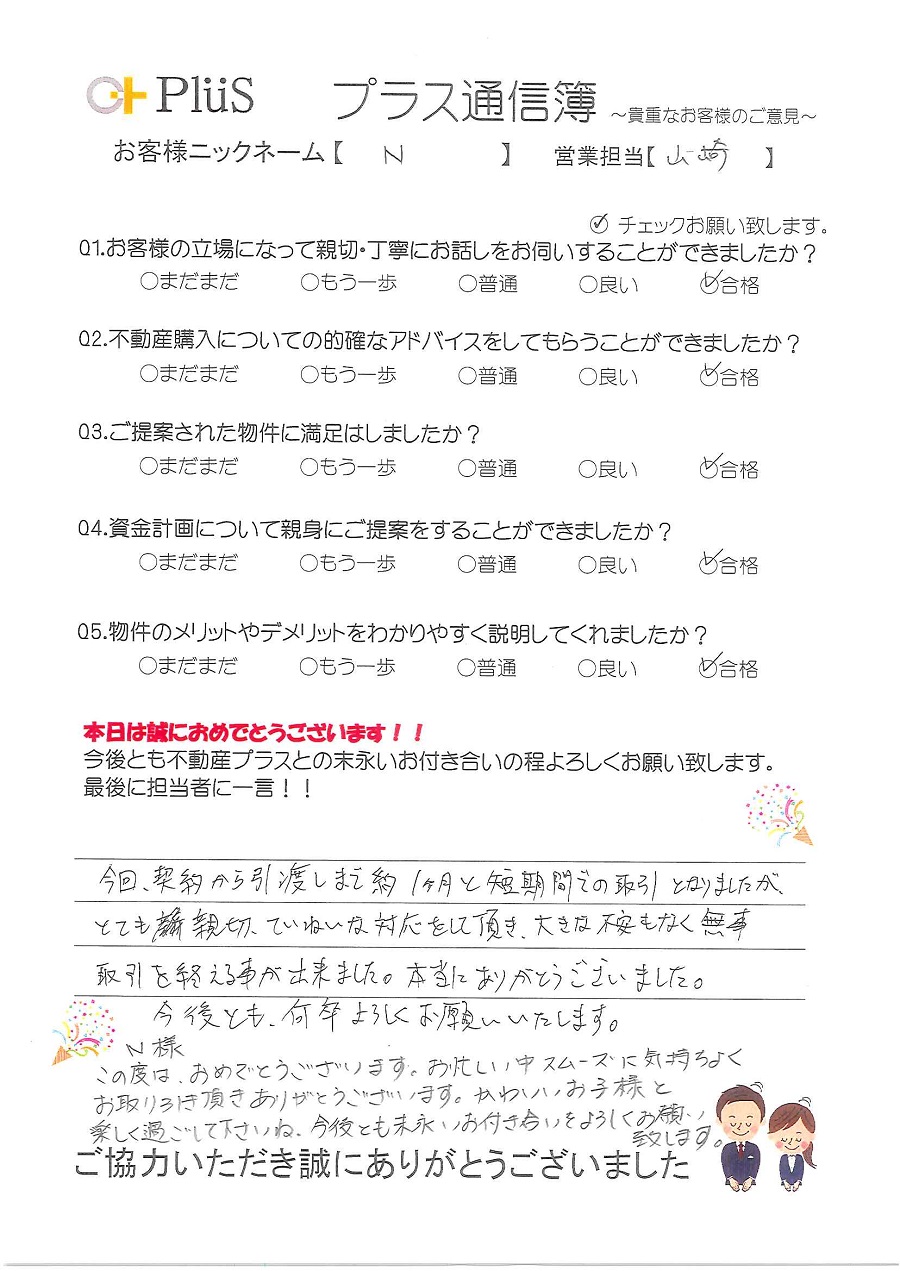 PlüS プラス通信簿 ~貴重なお客様のご意見~
お客様ニックネーム【 N 】 営業担当【 山崎 】
チェックお願い致します。
Q1.お客様の立場になって親切・丁寧にお話しをお伺いすることができましたか？
○まだまだ ○もう一歩 ○普通 ○良い ○合格
Q2.不動産購入についての的確なアドバイスをしてもらうことができましたか？
○まだまだ ○もう一歩 ○普通 ○良い ○合格
Q3.ご提案された物件に満足はしましたか？
○まだまだ ○もう一歩 ○普通 ○良い ○合格
Q4.資金計画について親身にご提案をすることができましたか？
○まだまだ ○もう一歩 ○普通 ○良い ○合格
Q5.物件のメリットやデメリットをわかりやすく説明してくれましたか？
○まだまだ ○もう一歩 ○普通 ○良い ○合格
本日は誠におめでとうございます！！
今後とも不動産プラスとの末永いお付き合いの程よろしくお願い致します。
最後に担当者に一言！！
今回、契約から引渡しまで約1ヶ月と短期間での取引となりましたが、
とても親切、ていねいな対応をして頂き、大きな不安もなく無事
取引を終える事が出来ました。本当にありがとうございました。
今後とも、何卒よろしくお願いいたします。
N様
この度は、おめでとうございます。お忙しい中スムーズに気持ちよく
お取り引き頂きありがとうございます。かわいいお子様と
楽しく過ごして下さいね、今後とも末永いお付き合いをよろしくお願い
致します。
ご協力いただき誠にありがとうございました